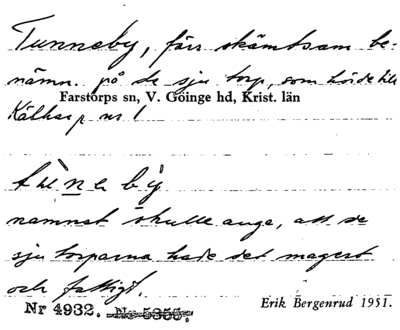 Tunneby, förs skämtsam be-
nämn. på de sju torp, som hörde till
Farstorps sn, V. Göinge hd, Krist. län
Kältorp nr 1
by
namnet skulle ange, att de
sju torparna hade det magert
och fattigt.
Nr 4932. Nr 5355.
Erik Bergenrud 1951.